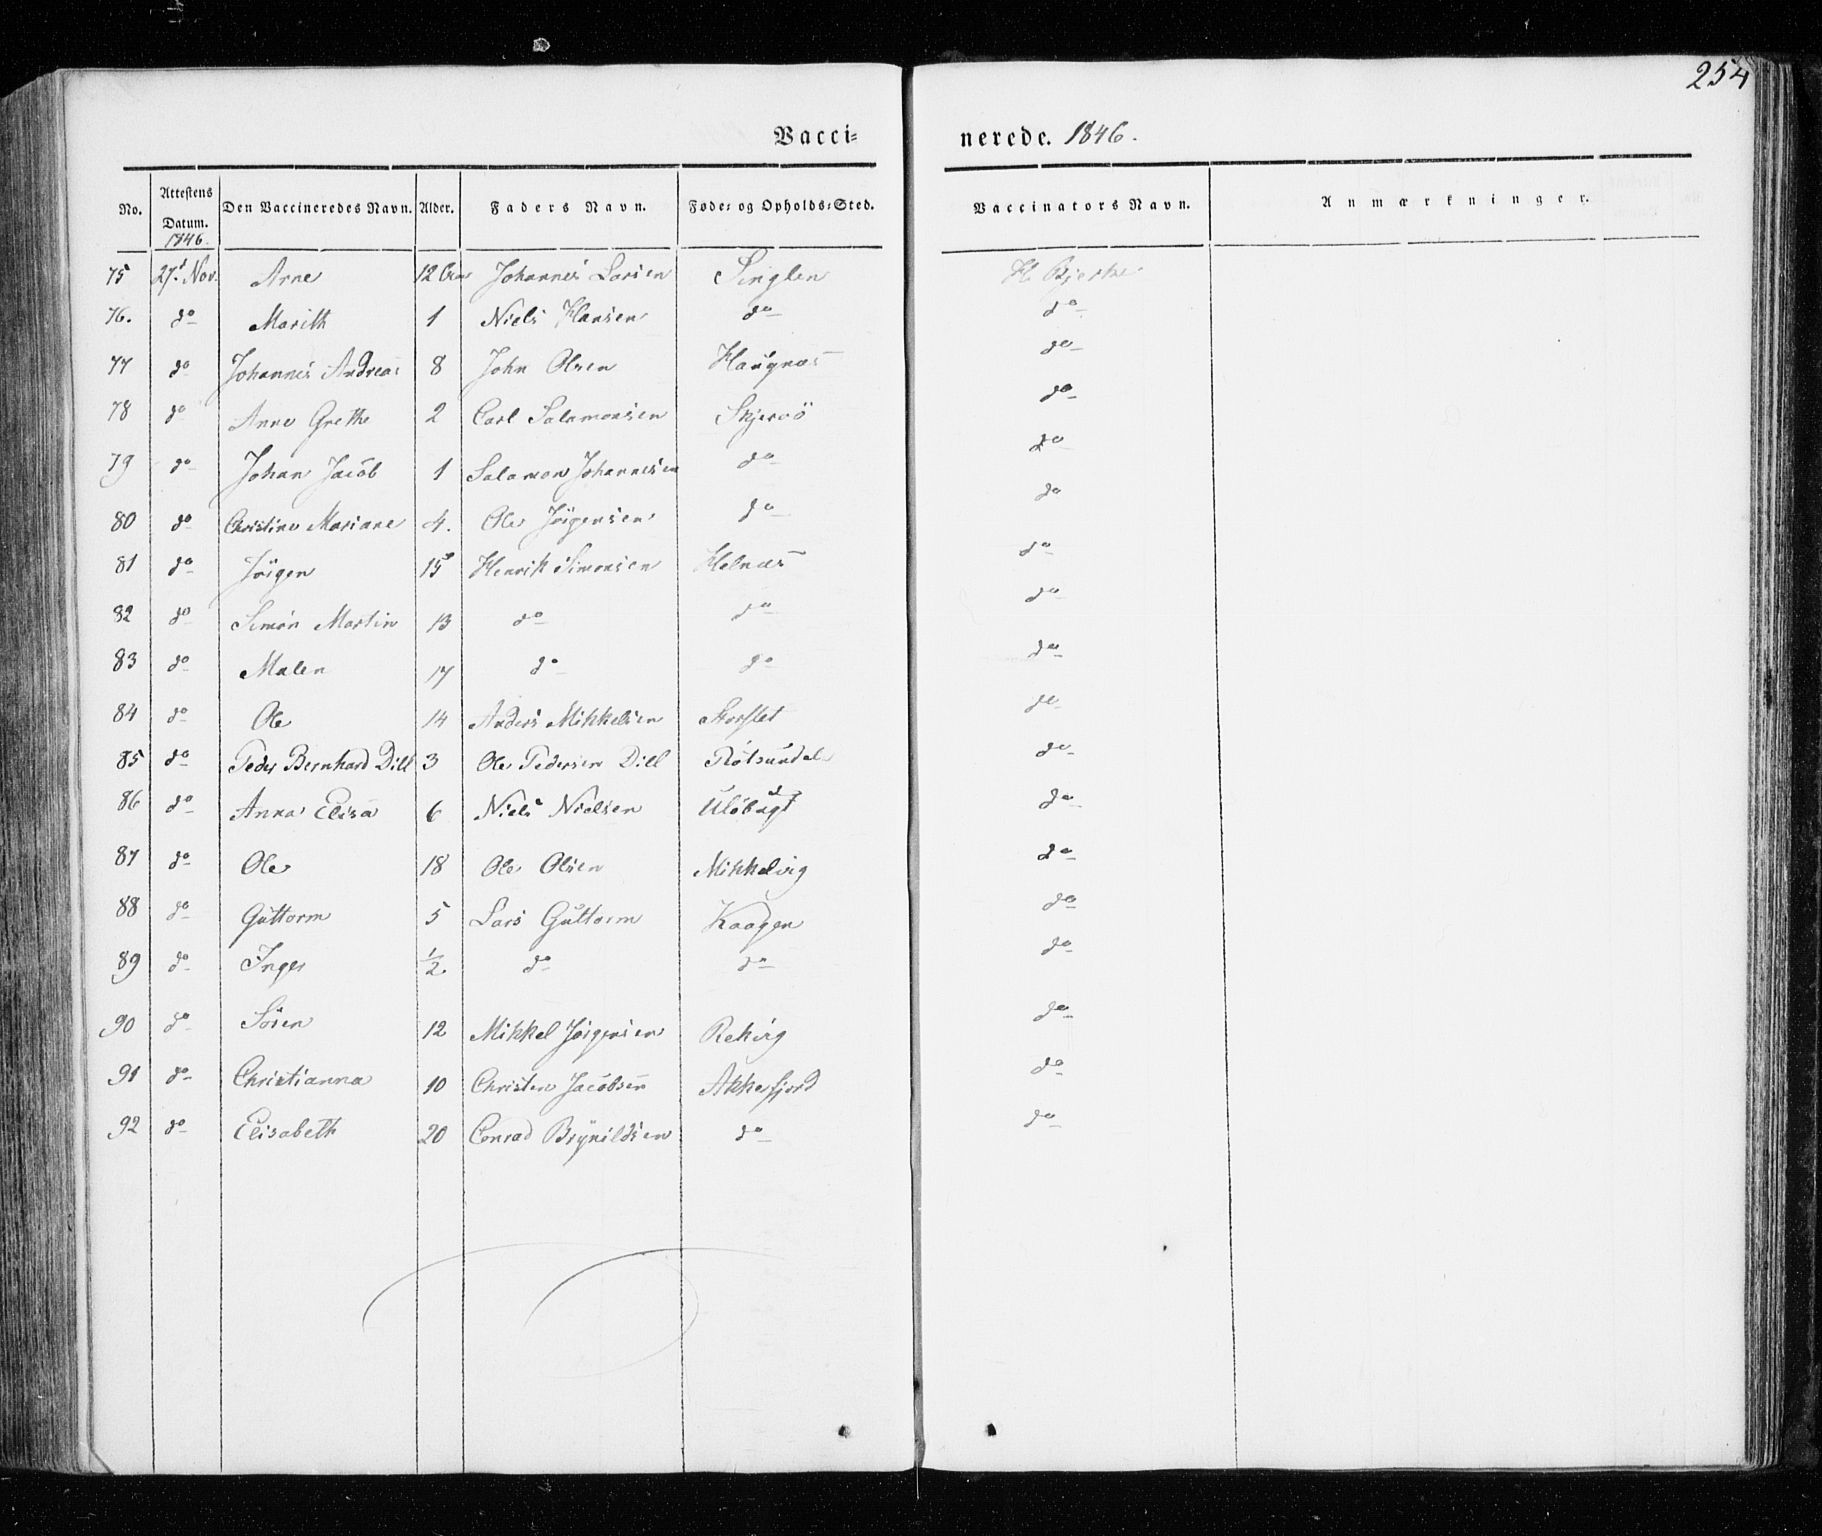 254
Vacci= nerede. 1846.
No. Attestens Datum. Den Vaccineredes Navn. Alder. Faders Navn. Føde= og Opholds=Sted. Vaccinators Navn. Anmærkninger.
1846.
75 27. Nov. Arne 12 Johannes Larsen H. Bjerke
76. do Marith 1 Niels Hansen do do
77 do Johannes Andreas 8 John Olsen Haugnæs do
78 do Anne Grethe 2 Carl Salamonsen Skjervö do
79 do Johan Jacob 1 Salamon Johannesen do do
80 do Christine Mariane 4. Ole Jörgensen do do
81 do Jörgen 15 Henrik Simonsen Helnæs do
82 do Simon Martin 13 do do do
83 do Malen 17 do do do
84 do Ole 14 Anders Mikkelsen Storslet do
85 do Peder Bernhard Dill 3 Ole Pedersen Dill Rötsundel do
86 do Anna Elisa 6 Niels Nielsen Ulöbugt do
87 do Ole 18 Ole Olsen Mikkelvig do
88 do Guttorm 5 Lars Guttorm Kaagen do
89 do Inger 1/2. do do do
90 do Sören 12 Mikkel Jörgensen Rekvig do
91 do Christianna 10 Christen Jacobsen Akkefjord do
92 do Elisabeth 20 Conrad Brynildsen do do